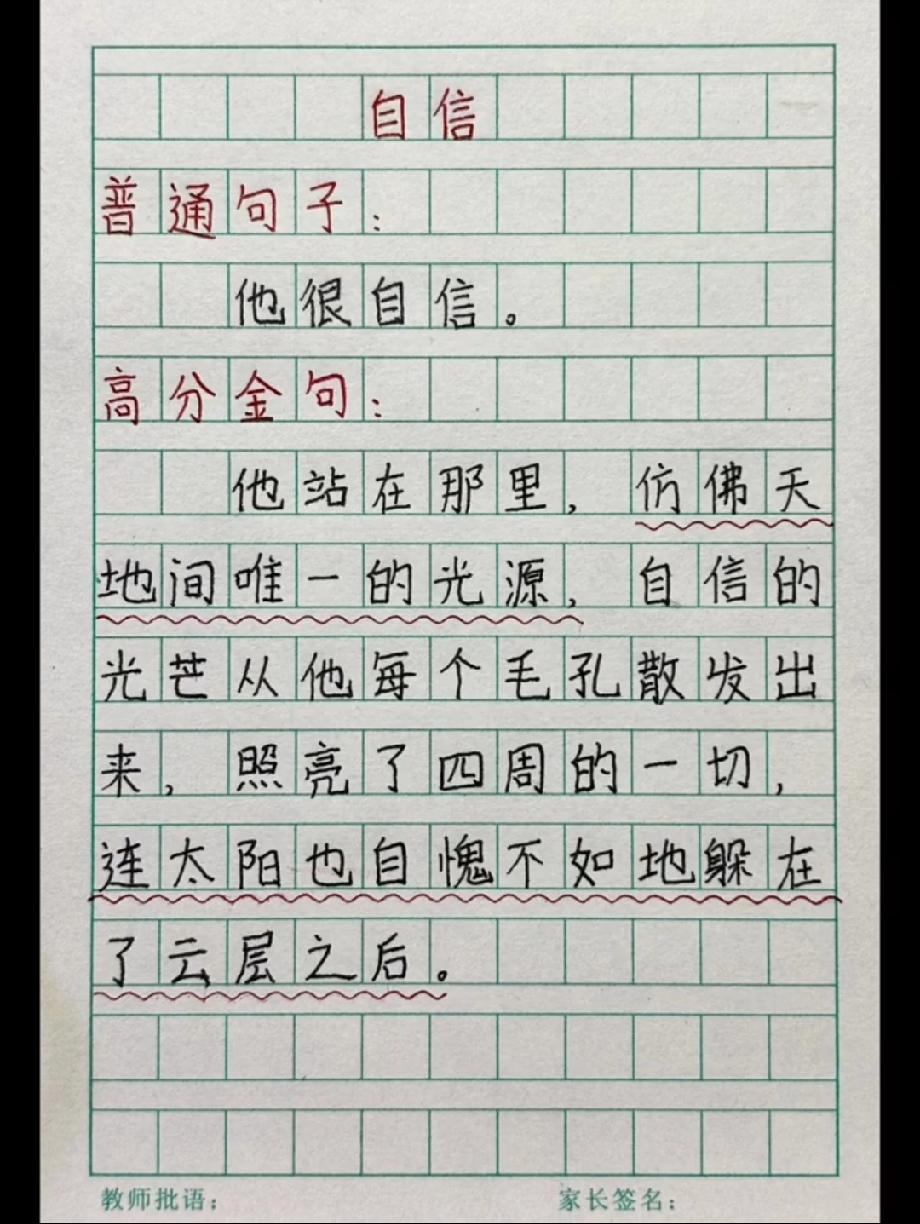 自信
普通句子：
他很自信。
高分金句：
他站在那里，仿佛天
地间唯一的光源，自信的
光芒从他每个毛孔散发出
来，照亮了四周的一切，
连太阳也自愧不如地躲在
了云层之后。
教师批语： 家长签名：